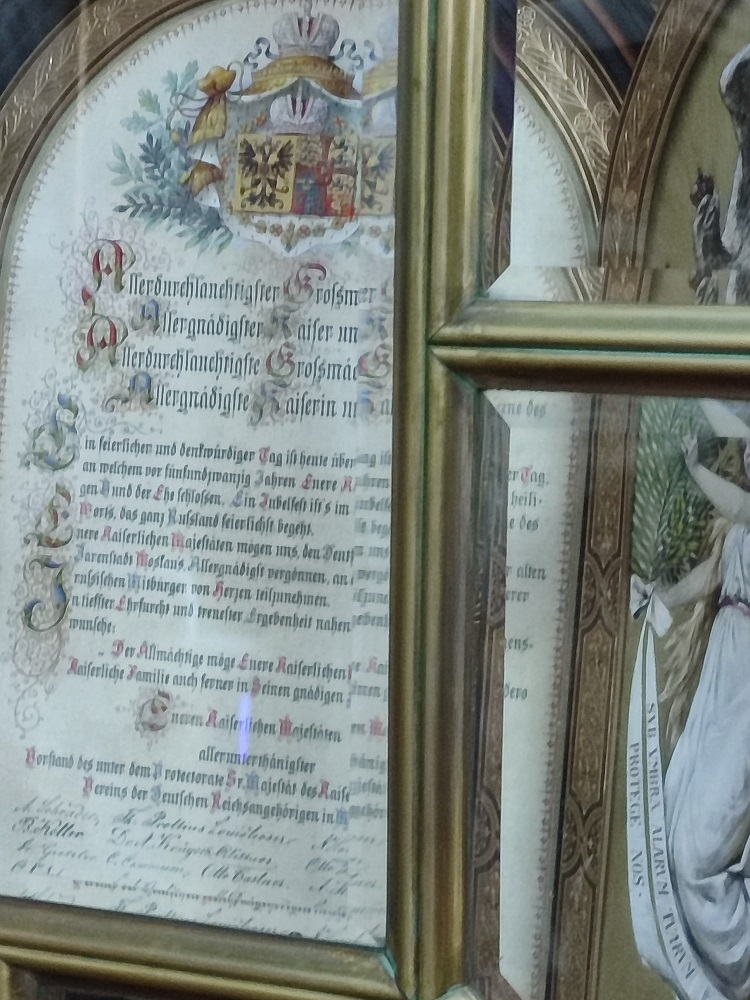 Allerdurchlauchtigster Grossm
Allergnädigster Kaiser un
Allerdurchlauchtigste Grossmäc
Allergnädigste Kaiserin u
Ein feierlicher und denkwürdiger Tag ist heute über
an welchem vor fünfundzwanzig Jahren Euere K
gen Bund der Ehe schlossen. Ein Jubelfest ist's im
Worts, das ganz Russland feierlichst begeht.
Euere Kaiserlichen Majestäten mögen uns, den Deut
Zarenstadt Moskau's, Allergnädigst vergönnen, an
russischen Mitbürger von Herzen teilzunehmen.
In tiefster Ehrfurcht und treuester Ergebenheit nahen
wunsche:
„Der Allmächtige möge Euere Kaiserlichen
Kaiserliche Familie auch ferner in Seinen gnädigen
Eueren Kaiserlichen Majestäten
allerunterthänigster
Vorstand des unter dem Protectorate Sr. Majestät des Kaise
Vereins der Deutschen Reichsangehörigen in
B. Köller
Otto Bastner
ne des
er Tag,
heili-
e des
r alten
erer
ens-
Dero
SVB VMBRA ALARVM TVARVM
PROTEGE NOS